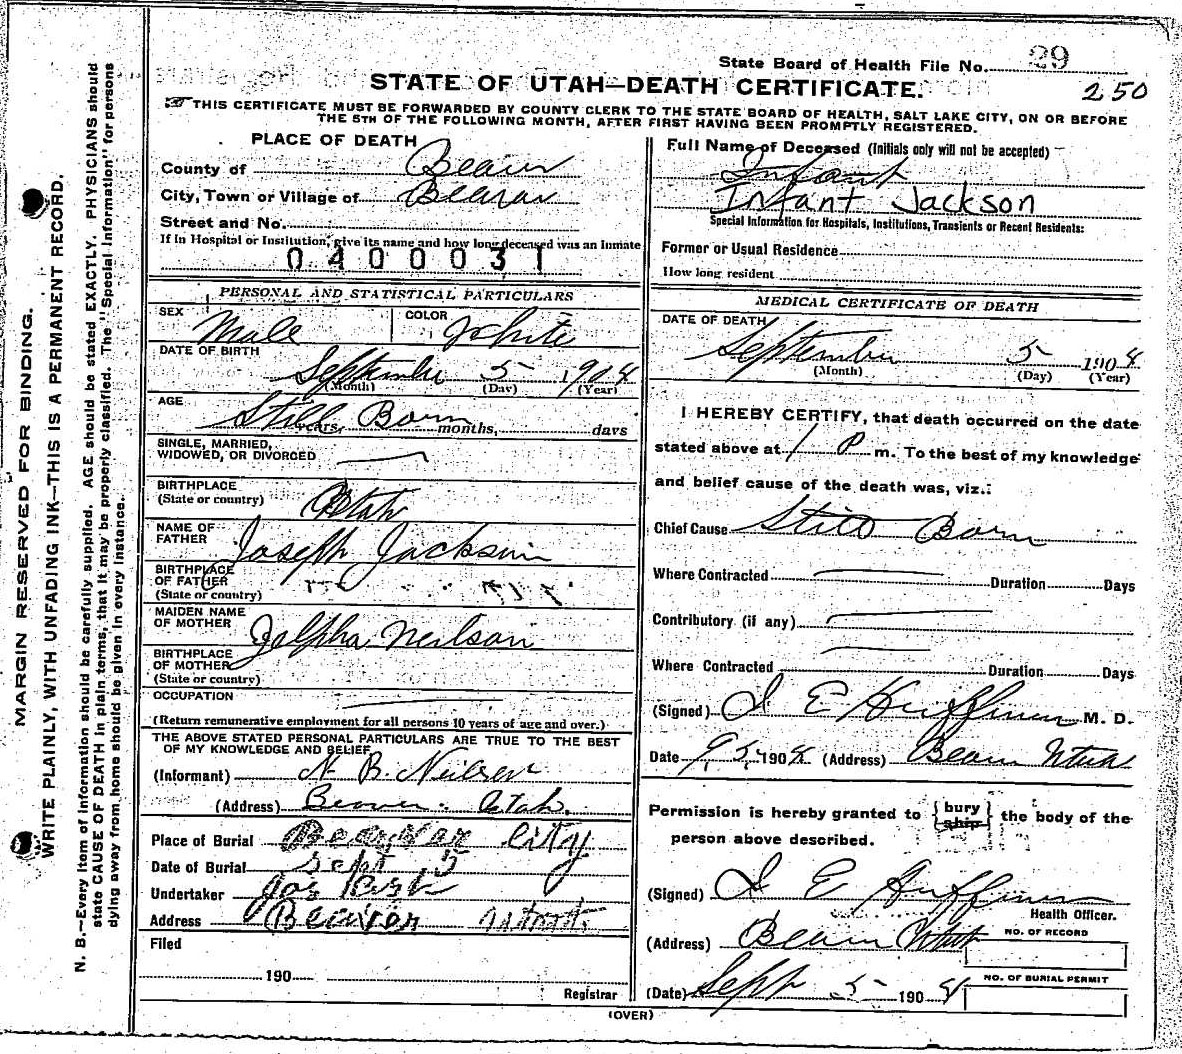 State Board of Health File No. 29
STATE OF UTAH—DEATH CERTIFICATE.
250
THIS CERTIFICATE MUST BE FORWARDED BY COUNTY CLERK TO THE STATE BOARD OF HEALTH, SALT LAKE CITY, ON OR BEFORE
THE 5TH OF THE FOLLOWING MONTH, AFTER FIRST HAVING BEEN PROMPTLY REGISTERED.
PLACE OF DEATH
County of Beaver
City, Town or Village of
Street and No.
If in Hospital or Institution, give its name and how long deceased was an Inmate
0400031
PERSONAL AND STATISTICAL PARTICULARS
SEX Male COLOR White
DATE OF BIRTH
September 5 1908
(Month) (Day) (Year)
AGE Still Born
years, months, days
SINGLE, MARRIED,
WIDOWED, OR DIVORCED
BIRTHPLACE
(State or country) Utah
NAME OF
FATHER Joseph Jackson
BIRTHPLACE
OF FATHER
(State or country)
MAIDEN NAME
OF MOTHER Neilson
BIRTHPLACE
OF MOTHER
(State or country)
OCCUPATION
(Return remunerative employment for all persons 10 years of age and over.)
THE ABOVE STATED PERSONAL PARTICULARS ARE TRUE TO THE BEST
OF MY KNOWLEDGE AND BELIEF
(Informant) N. B. Neilsen
(Address) Beaver. Utah.
Place of Burial City
Date of Burial Sept 5
Undertaker Jos
Address Beaver
Filed
190
Registrar
Full Name of Deceased (Initials only will not be accepted)
Infant
Infant Jackson
Special Information for Hospitals, Institutions, Transients or Recent Residents:
Former or Usual Residence
How long resident
MEDICAL CERTIFICATE OF DEATH
DATE OF DEATH
September 5 1908
(Month) (Day) (Year)
I HEREBY CERTIFY, that death occurred on the date
stated above at 1 P m. To the best of my knowledge
and belief cause of the death was, viz.:
Chief Cause Still Born
Where Contracted Duration Days
Contributory (if any)
Where Contracted Duration Days
(Signed) E M. D.
Date 9, 5, 1908 (Address) Beaver Utah
Permission is hereby granted to { bury ship } the body of the
person above described.
(Signed) E
Health Officer.
(Address) Beaver Utah
NO. OF RECORD
NO. OF BURIAL PERMIT
(Date) Sept 5 1908
(OVER)
MARGIN RESERVED FOR BINDING.
WRITE PLAINLY, WITH UNFADING INK—THIS IS A PERMANENT RECORD.
N. B.—Every item of information should be carefully supplied. AGE should be stated EXACTLY. PHYSICIANS should
state CAUSE OF DEATH in plain terms, that it may be properly classified. The "Special Information" for persons
dying away from home should be given in every instance.